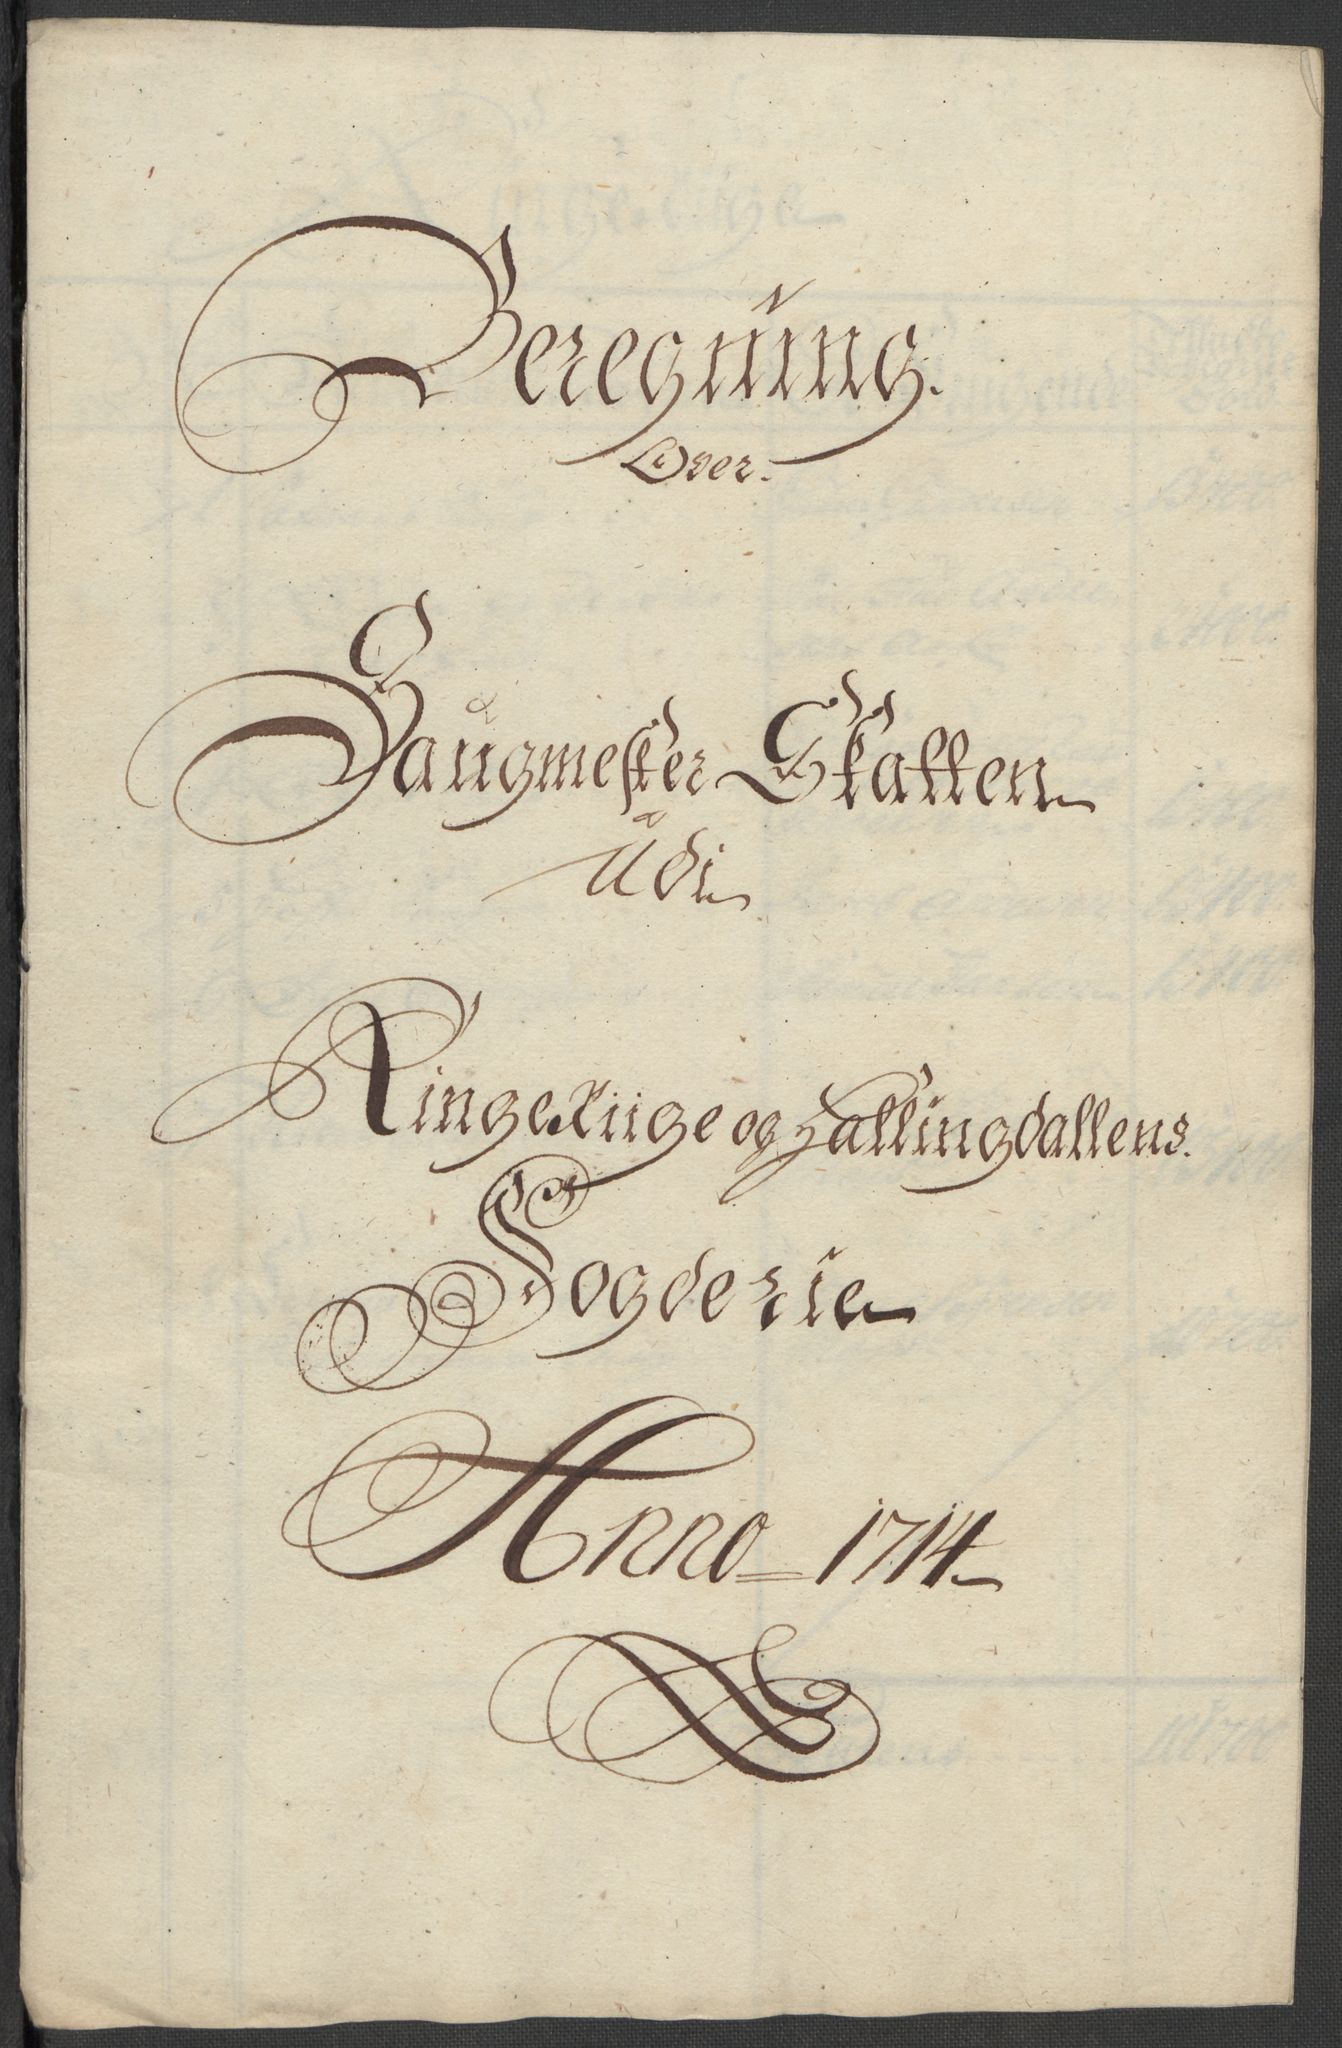 Beregning
Over
Saugmester Skatten
Udi
Ringerige og Hallingdallens
Fogderie
Anno 1714